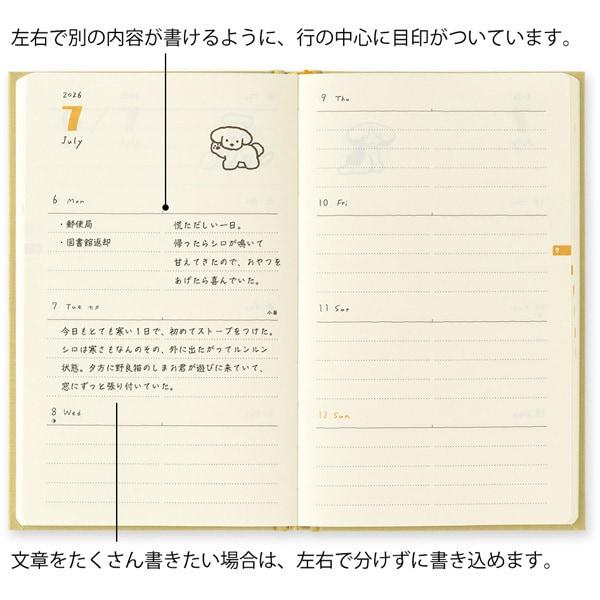 左右で別の内容が書けるように、行の中心に目印がついています。
2026
7
July
6 Mon
・郵便局
・図書館返却
慌ただしい一日。
帰ったらシロが鳴いて
甘えてきたので、おやつを
あげたら喜んでいた。
7 Tue 七夕
小暑
今日もとても寒い1日で、初めてストーブをつけた。
シロは寒さもなんのその、外に出たがってルンルン
状態。夕方に野良猫のしまお君が遊びに来ていて、
窓にずっと張り付いていた。
8 Wed
9 Thu
10 Fri
7
11 Sat
12 Sun
文章をたくさん書きたい場合は、左右で分けずに書き込めます。